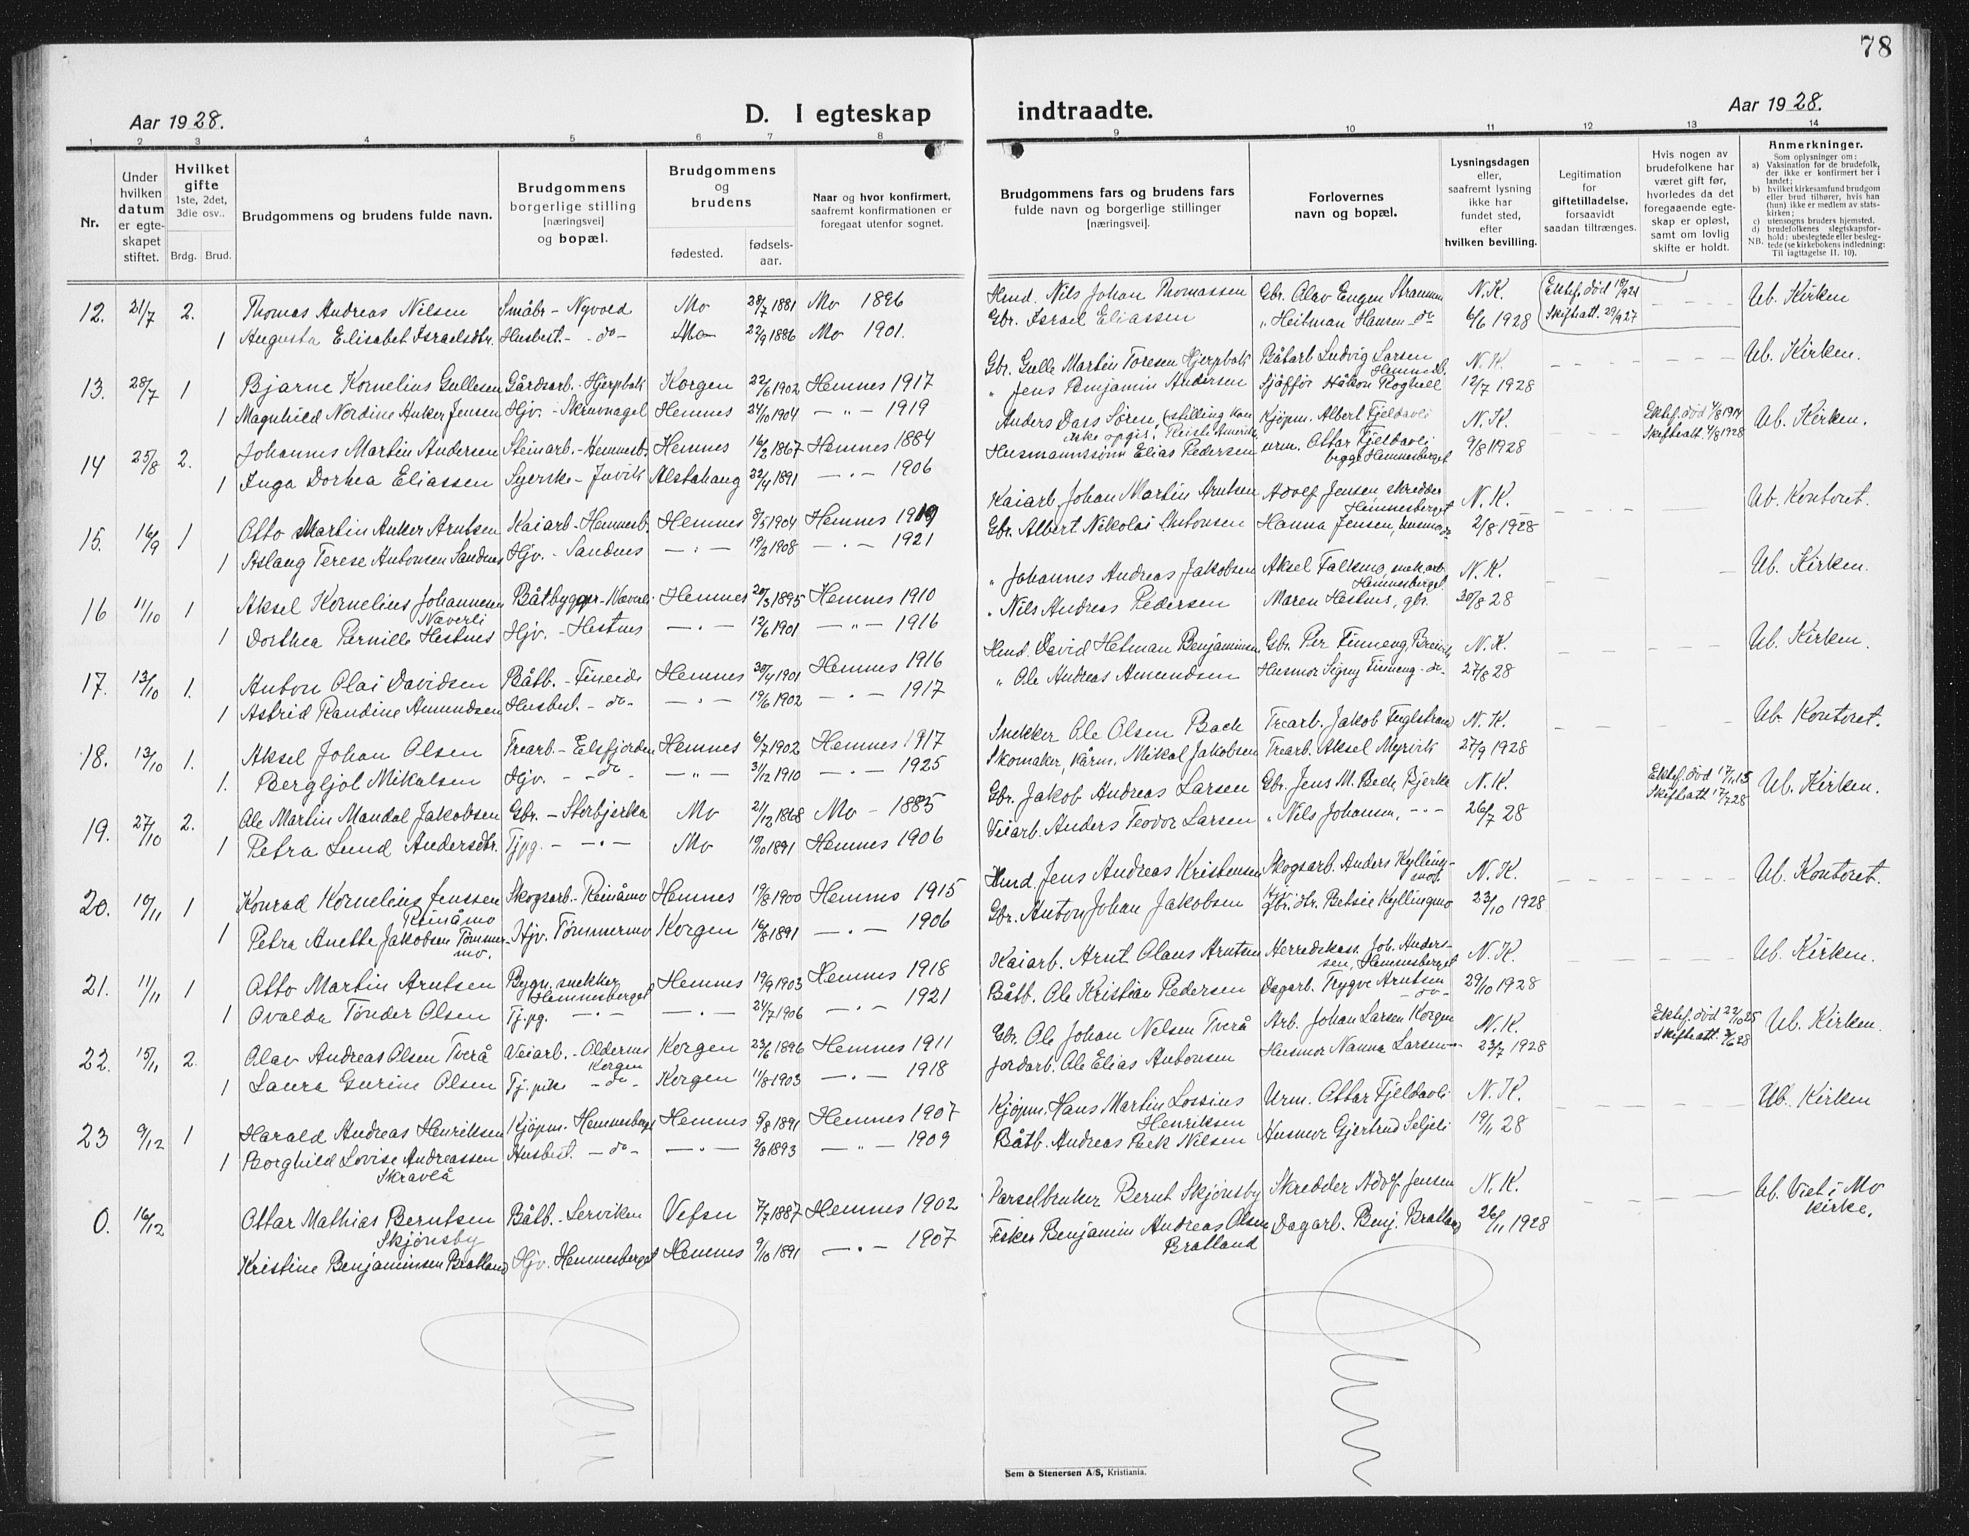 78
Aar 1928.
D. I egteskap indtraadte.
Aar 1928.
1 2 3 4 5 6 7 8 9 10 11 12 13 14
Nr.
Under hvilken datum er egteskapet stiftet.
Hvilket gifte 1ste, 2det, 3die osv..
Brdg. Brud.
Brudgommens og brudens fulde navn.
Brudgommens borgerlige stilling [næringsvei] og bopæl.
Brudgommens og brudens
fødested. fødselsaar.
Naar og hvor konfirmert, saafremt konfirmationen er foregaat utenfor sognet.
Brudgommens fars og brudens fars fulde navn og borgerlige stillinger [næringsvei].
Forlovernes navn og bopæl.
Lysningsdagen eller, saafremt lysning ikke har fundet sted, efter hvilken bevilling.
Legitimation for giftetilladelse, forsaavidt saadan tiltrænges.
Hvis nogen av brudefolkene har været gift før, hvorledes da det foregaaende egteskap er opløst, samt om lovlig skifte er holdt.
Anmerkninger.
Som oplysninger om:
a) Vaksination for de brudefolk, der ikke er konfirmert her i landet;
b) hvilket kirkesamfund brudgom eller brud tilhører, hvis han (hun) ikke er medlem av statskirken;
c) utensogns bruders hjemsted.
d) brudefolkenes slegtskapsforhold: ubeslegtede eller beslegtede (se kirkebokens indledning:
NB. Til iagttagelse II. 10).
12. 21/7 2. Thomas Andreas Nilsen Småbr - Nyvold Mo 28/7 1881 Mo 1896 Nils Johan Thomassen Gbr. Olav Eugen N.K. Ektef. død Skifteatt. 29/9 27 Ub. Kirken
1 Augusta Elisabet Israelsdtr. Husbest. - do - Mo 22/9 1886 Mo 1901. Gbr. Israel Eliassen " Heitman Hansen do 6/6 1928
13. 28/7 1 Bjarne Kornelius Gullesen Gårdsarb. - Hjerpbak Korgen 22/6 1902 Hemnes 1917 Gbr. Gulle Martin Toresen Hjerpbak Båtarb Ludvig Larsen N.K. Ub. Kirken.
1 Magnhild Nordine Anker Jensen Hjv. - Hemnes 24/10 1904 - " - 1919 " Jens Benjamin Andersen Sjåffør Håkon 12/7 1928
14 25/8 2. Johannes Martin Andersen Steinarb. - Hemnesb. Hemnes 16/2 1867 Hemnes 1884 Anders Lars Søren, (stilling kan ikke opgis. Kjøpm. Albert Fjeldavli N.K. Ektef. død 4/8 1914 Skifteatt. 4/8 1928 Ub. Kirken.
1 Inga Dorhea Eliassen Syerske - Juvik Alstahaug 22/4 1891 - " - 1906 Husmannssønn Elias Pedersen urm. Ottar Fjeldavli begge Hemnesberget 9/8 1928
15. 16/9 1 Otto Martin Anker Arntsen Kaiarb - Hemnesb. Hemnes 8/5 1904 Hemnes 1919 Kaiarb. Johan Martin Arntsen Adolf Jensen, skredder Hemnesberget N.K. Ub. Kontoret.
1 Aslaug Terese Antonsen Sandnes Hjv. - Sandnes - " - 19/2 1908 - " - 1921 Gbr. Albert Nikolai Antonsen Hanna Jensen, husmor do 2/8 1928
16 11/10 1 Aksel Kornelius Johannesen Næverli Båtbygger - Næverli Hemnes 20/3 1895 Hemnes 1910 " Johannes Andreas Jakobsen Aksel Hemnesberget N.K. Ub. Kirken.
1 Dorthea Pernille Hestnes Hjv. - Hestnes - " - 12/6 1901 - " - 1916 " Nils Andreas Pedersen Maren Hestnes, gbr. 30/8 28
17. 13/10 1. Anton Olai Davidsen Båtb. - Fineide Hemnes 30/4 1901 Hemnes 1916 David Hetman Benjaminsen Gbr. Per Finneng, N.K. Ub. Kirken.
1 Astrid Randine Amundsen Husbest. - do - - " - 19/6 1902 - " - 1917 " Ole Andreas Amundsen Husmor Signy Finneng - do - 27/8 28
18. 13/10 1. Aksel Johan Olsen Trearb. - Elsfjorden Hemnes 6/7 1902 Hemnes 1917 Snekker Ole Olsen Bach Trearb. Jakob Fuglstrand N.K. Ub. Kontoret.
1. Bergljot Mikalsen Hjv. - do - - " - 31/12 1910 - " - 1925 Skomaker, Mikal Jakobsen Trearb. Aksel Myrvik 27/9 1928
19. 27/10 2. Ole Martin Mandal Jakobsen Gbr. - Storbjerka Mo 21/12 1868 Mo - 1885 Gbr. Jakob Andreas Larsen Gbr. Jens M. Bech, Bjerka N.K. Ektef. død 17/1 15 Skifteatt 17/7 28 Ub. Kirken.
1 Petra Lund Andersdtr. Tjpg. - " - Mo 19/10 1891 Hemnes 1906 Veiarb. Anders Teodor Larsen " Nils Johansen, - " - 26/7 28
20. 10/11 1 Konrad Kornelius Jenssen Reinåmo Skogsarb. - Reinåmo Hemnes 19/8 1900 Hemnes 1915 Jens Andreas Kristensen Skogsarb. Anders Kyllingmo N.K. Ub. Kontoret.
1 Petra Anette Jakobsen Tømmermo. Hjv. Tømmermo Korgen 16/8 1891 - " - 1906 Gbr. Anton Johan Jakobsen Betsie Kyllingmo 23/10 1928
21. 11/11 1 Otto Martin Arntsen Bygn. snekker Hemnesberget Hemnes 19/9 1903 Hemnes 1918 Kaiarb. Arnt Olaus Arntsen Herredskass. Joh. Anderssen, Hemnesberget N.K. Ub. Kirken.
1 Ovalda Tønder Olsen Tj.pg. - " - - " - 24/7 1906 - " - 1921 Båtb. Ole Kristian Pedersen Dagarb. Trygve Arntsen - do - 29/10 1928
22. 15/11 2. Olav Andreas Olsen Tverå Veiarb. - Oldernes Korgen Korgen 23/6 1896 Hemnes 1911 Gbr. Ole Johan Nelsen Tverå Arb. Johan Larsen Korgen N.K. Ektef. død 22/10 25 Skifteatt. 2/6 28 Ub. Kirken.
1 Laura Gurine Olsen Tj. pike - do - Korgen 11/8 1903 - " - 1918 Jordarb. Ole Elias Antonsen Husmor Nanna Larsen - " - 23/7 1928
23 9/12 1 Harald Andreas Henriksen Kjøpm. Hemnesberget Hemnes 9/8 1891 Hemnes 1907 Kjøpm. Hans Martin Lossius Henriksen Urm. Ottar Fjeldavli N.K. Ub. Kirken
1 Borghild Lovise Andreassen Skravlå Husbest. - do - - " - 2/8 1893 - " - 1909 Båtb. Andreas Bek Nilsen Husmor Gjertrud Seljeli 19/11 28
0. 16/12 Ottar Mathias Berntsen Skjønsby Båtb. - Serviken Vefsn 7/7 1887 Hemnes 1902 Parselbruker Bernt Skjønsby Skredder Adolf Jensen N.K. Ub. Viet i Mo Kirke.
Kristine Benjaminsen Bratland Hjv. Hemnesberget Hemnes 9/10 1891 - " - 1907 Fisker Benjamin Andreas Olsen Bratland Dagarb. Benj. Bratland 26/11 1928
Sem & Stenersen A/S, Kristiania.